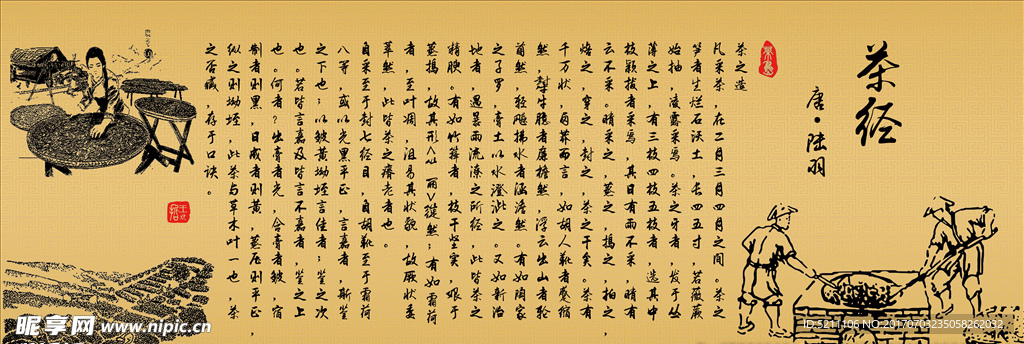 茶经
唐·陆羽
茶之造
凡采茶，在二月三月四月之间。茶之
笋者生烂石沃土，长四五寸，若薇蕨
始抽，凌露采焉。茶之牙者，发于丛
薄之上，有三枝四枝五枝者，选其中
枝颖拔者采焉，其日有雨不采，晴有
云不采。晴采之，蒸之，捣之，拍之，
焙之，穿之，封之，茶之干矣。茶有
千万状，卤莽而言，如胡人靴者蹙缩
然，犎牛臆者廉襜然，浮云出山者轮
菌然，轻飚拂水者涵澹然。有如陶家
之子罗，膏土以水澄泚之。又如新治
地者，遇暴雨流潦之所经，此皆茶之
精腴。有如竹箨者，枝干坚实，艰于
蒸捣，故其形 丽 褷然；有如霜荷
者，至叶凋，沮易其状貌，故厥状委
萃然，此皆茶之瘠老者也。
自采至于封七经目，自胡靴至于霜荷
八等，或以光黑平正，言嘉者，斯鉴
之下也；以皱黄坳垤言佳者；鉴之次
也。若皆言嘉及皆言不嘉者，鉴之上
也。何者？出膏者光，含膏者皱，宿
制者则黑，日成者则黄，蒸压则平正，
纵之则坳垤，此茶与草木叶一也，茶
之否臧，存于口诀。
昵享网 www.nipic.cn
ID:5211106 NO:20170703235058262032